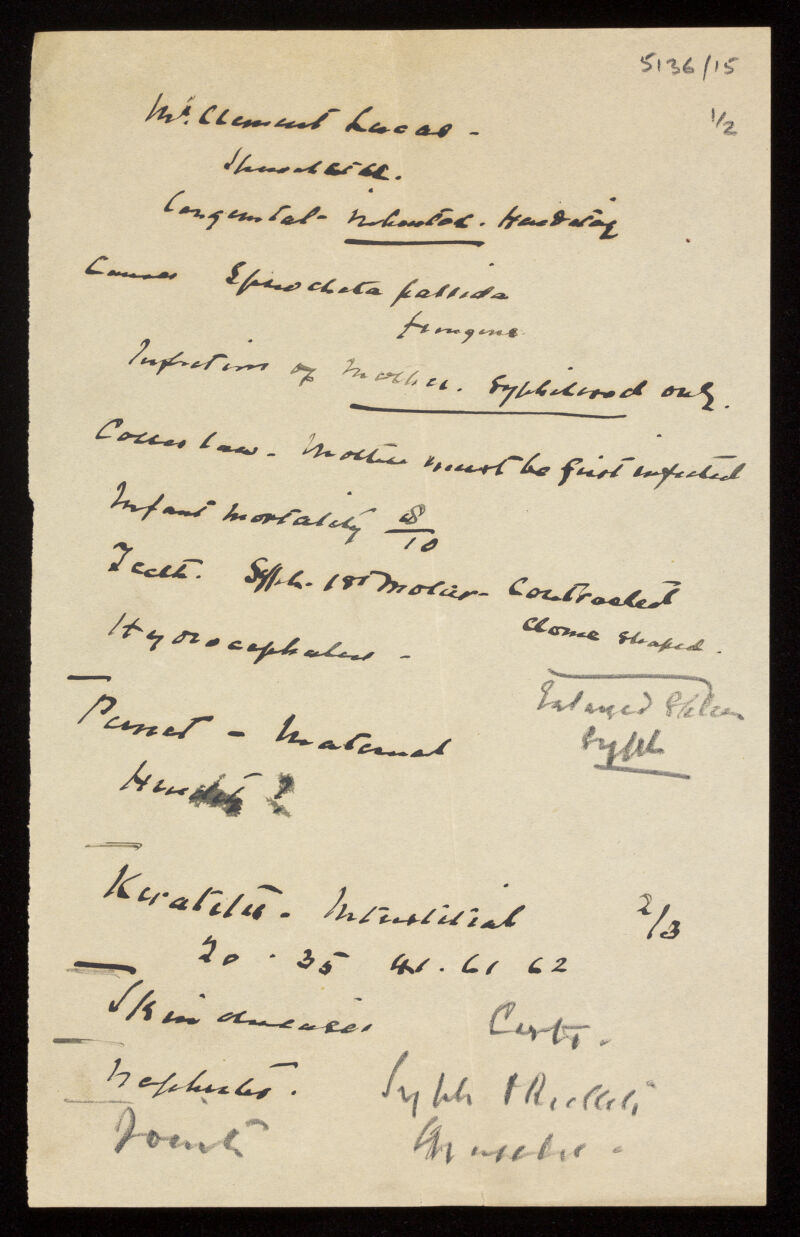 5136/15
1/2
Mr. Clement Lucas -
Congenital - Inherited. Heredity
Causes Spirocheta pallida
Infection of Mother. Syphil blood only.
Colles law - Mother must be first infected
Infant mortality 8/10
Teeth. Syph. 1st Molar - Contracted
dome shaped.
Hydrocephalus -
Enlarged Spleen
Syph
- Maternal
?
Keratitis - Interstitial 2/3
20 . 35 41 . 61 62
Skin diseases Casts.
Nephritis. Syph & Ricketts
Joints